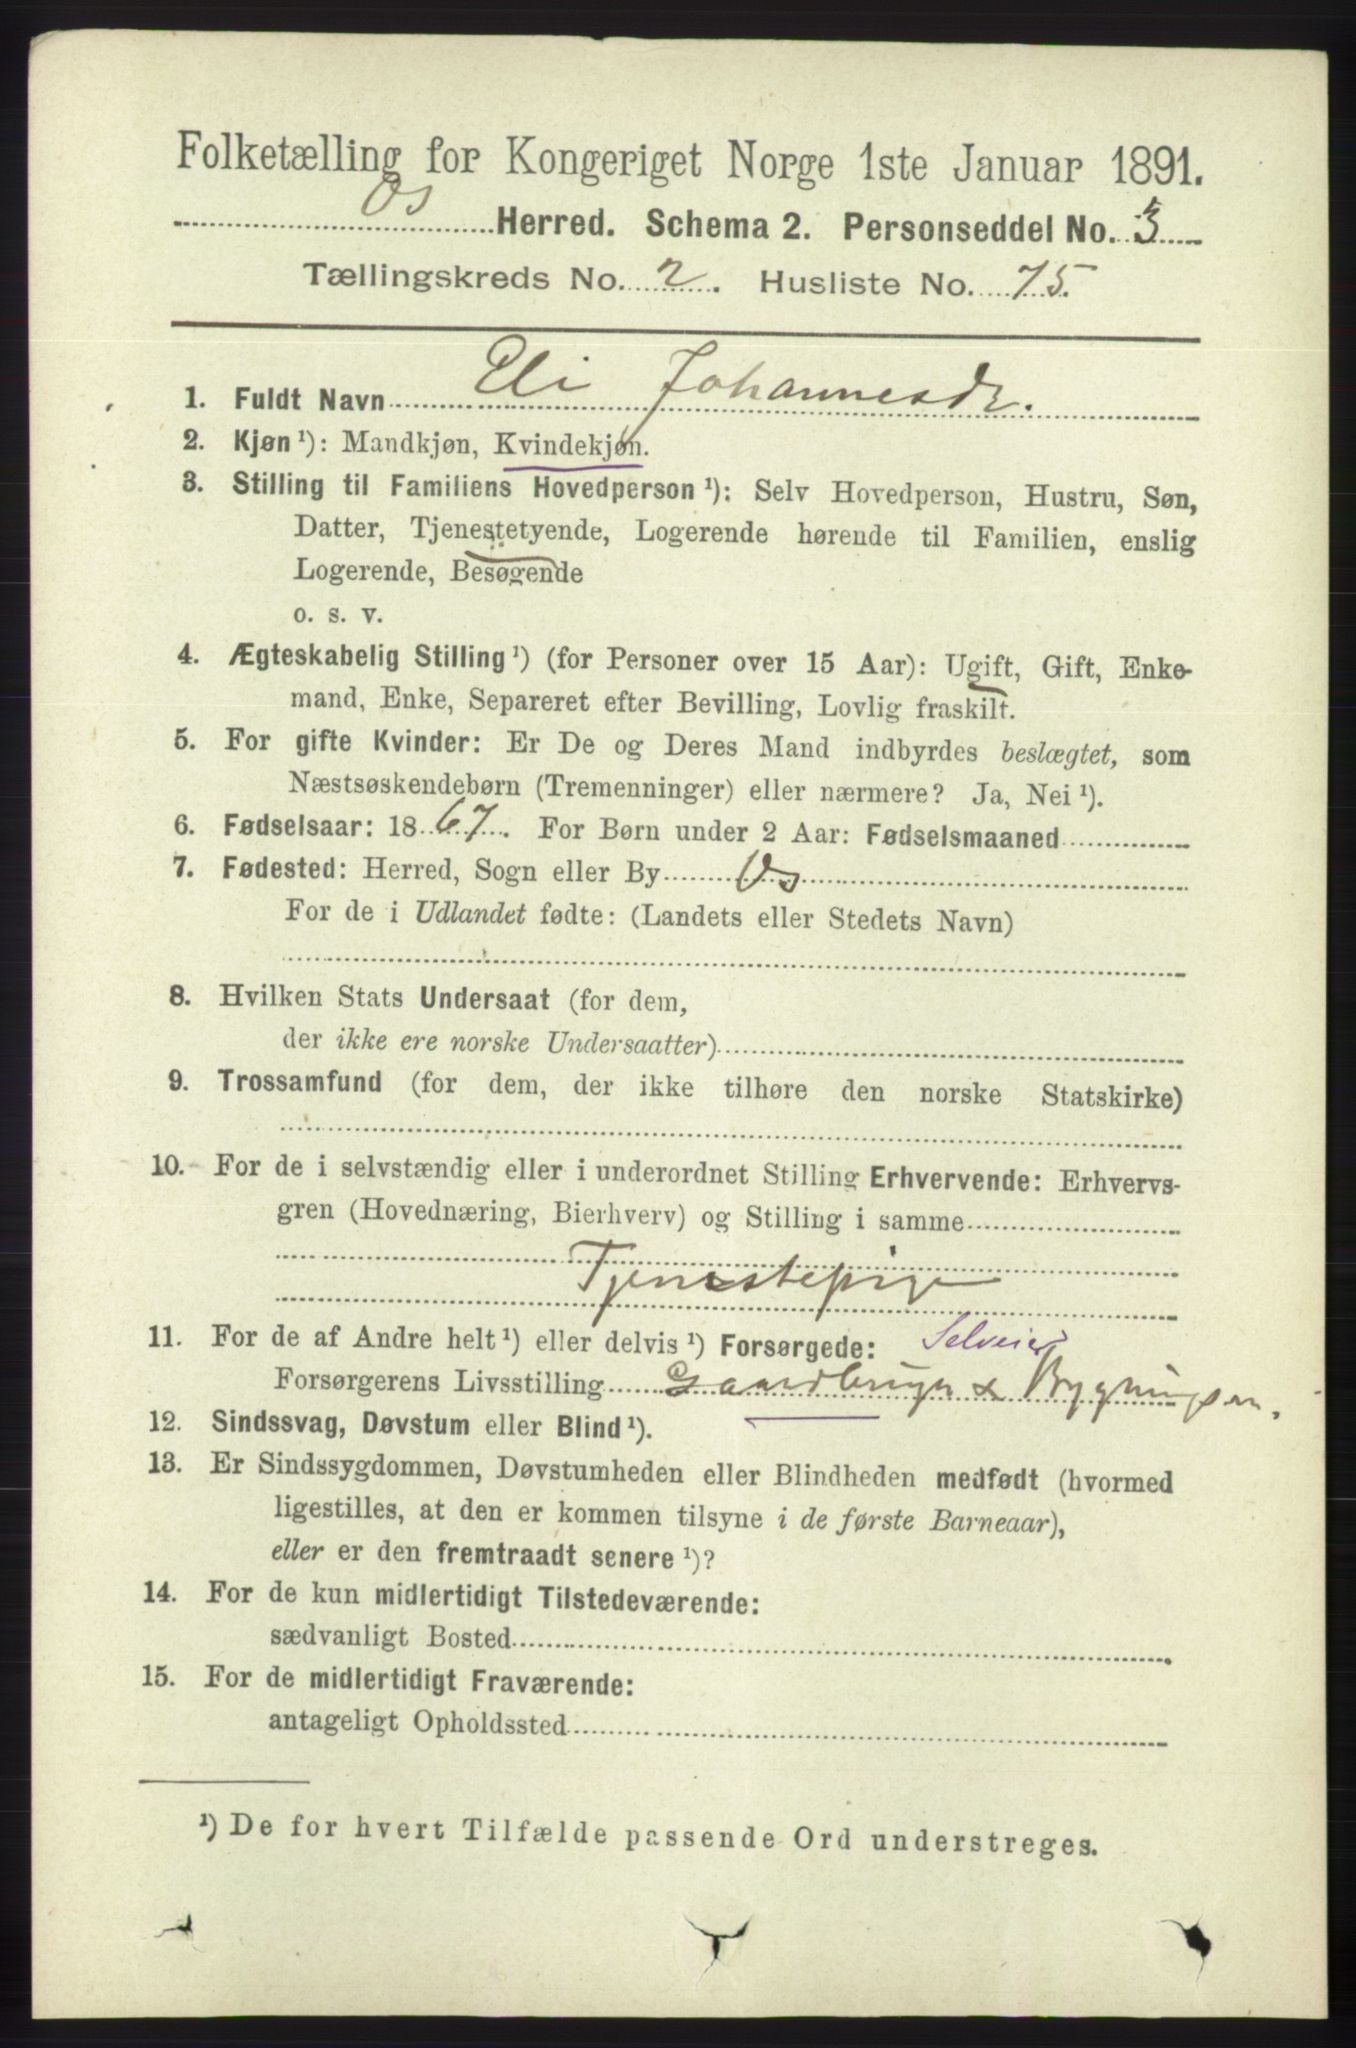 Folketælling for Kongeriget Norge 1ste Januar 1891.
Os Herred. Schema 2. Personseddel No.
Tællingskreds No. 2. Husliste No. 75.
1. Fuldt Navn Eli Johannesdr.
2. Kjøn ¹): Mandkjøn, Kvindekjøn.
3. Stilling til Familiens Hovedperson ¹): Selv Hovedperson, Hustru, Søn,
Datter, Tjenestetyende, Logerende hørende til Familien, enslig
Logerende, Besøgende
o. s. v.
4. Ægteskabelig Stilling ¹) (for Personer over 15 Aar): Ugift, Gift, Enke-
mand, Enke, Separeret efter Bevilling, Lovlig fraskilt.
5. For gifte Kvinder: Er De og Deres Mand indbyrdes beslægtet, som
Næstsøskendebørn (Tremenninger) eller nærmere? Ja, Nei ¹).
6. Fødselsaar: 1867. For Børn under 2 Aar: Fødselsmaaned
7. Fødested: Herred, Sogn eller By Os
For de i Udlandet fødte: (Landets eller Stedets Navn)
8. Hvilken Stats Undersaat (for dem,
der ikke ere norske Undersaatter)
9. Trossamfund (for dem, der ikke tilhøre den norske Statskirke)
10. For de i selvstændig eller i underordnet Stilling Erhvervende: Erhvervs-
gren (Hovednæring, Bierhverv) og Stilling i samme
Tjenestepige
11. For de af Andre helt ¹) eller delvis ¹) Forsørgede: Selveier
Forsørgerens Livsstilling Gaardbruger &
12. Sindssvag, Døvstum eller Blind ¹).
13. Er Sindssygdommen, Døvstumheden eller Blindheden medfødt (hvormed
ligestilles, at den er kommen tilsyne i de første Barneaar),
eller er den fremtraadt senere ¹)?
14. For de kun midlertidigt Tilstedeværende:
sædvanligt Bosted
15. For de midlertidigt Fraværende:
antageligt Opholdssted
¹) De for hvert Tilfælde passende Ord understreges.